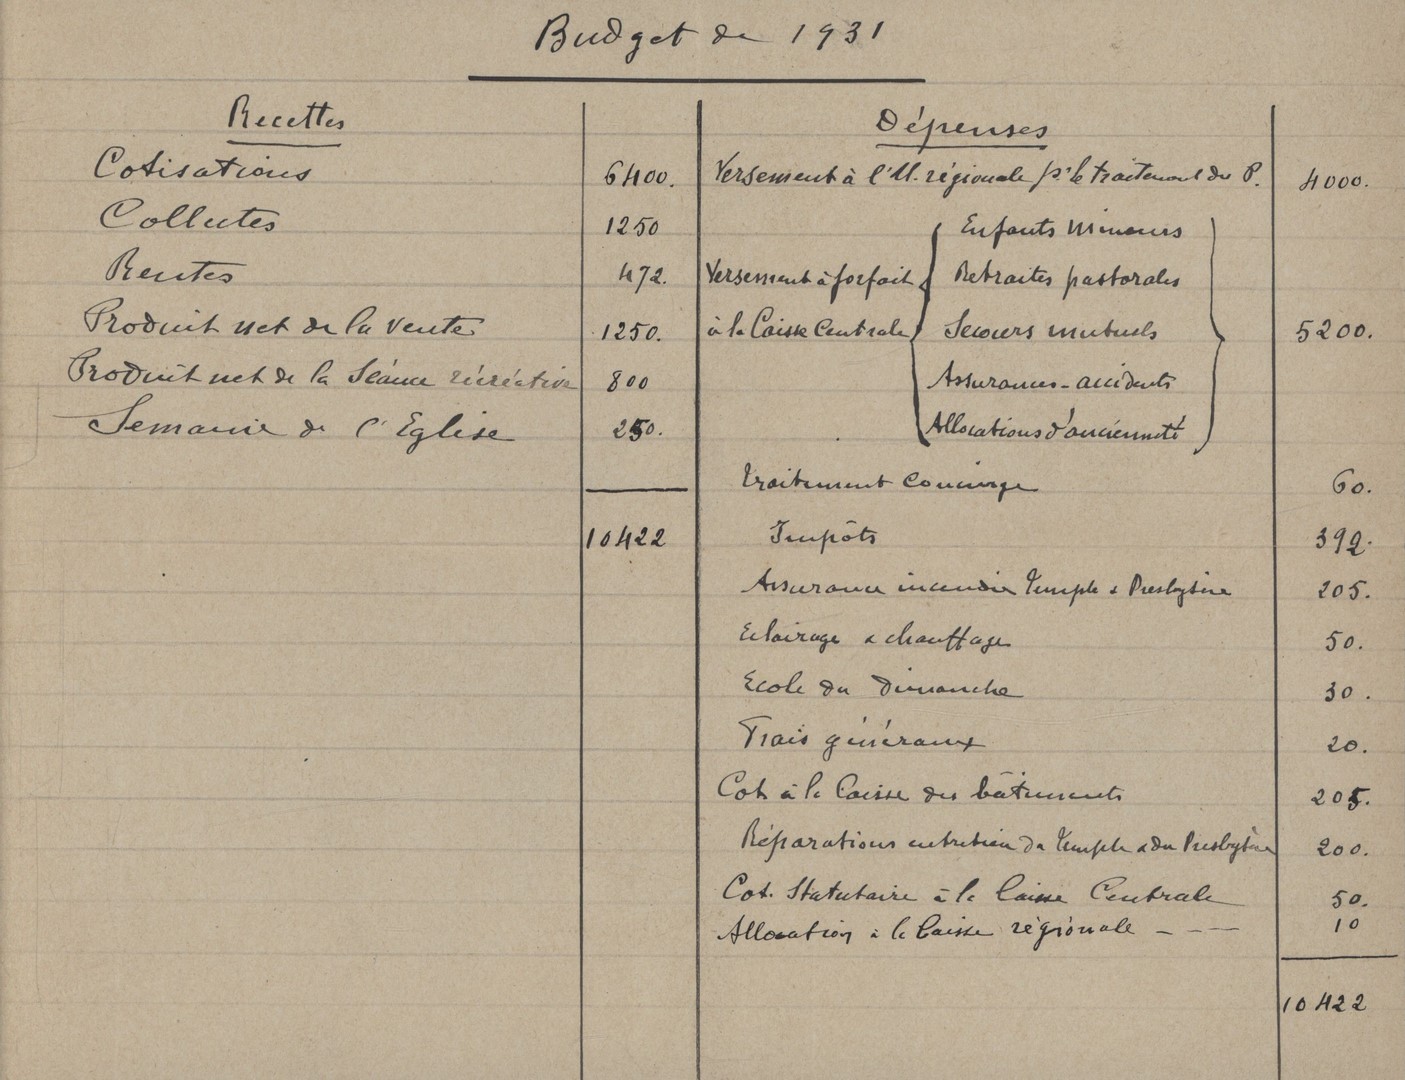 Budget de 1931
Recettes
Cotisations 6400.
Collectes 1250
Rentes 472.
Produit net de la vente 1250.
Produit net de la Séance récréative 800
Semaine de l'Eglise 250.
10422
Dépenses
Versement à l'U. régionale pr le traitement du P. 4000.
Versement à forfait
à la Caisse Centrale
Enfants mineurs
Retraites pastorales
Secours mutuels 5200.
Assurances-accidents
Allocations d'ancienneté
Traitement concierge 60.
Impôts 392.
Assurance incendie Temple & Presbytère 205.
Eclairage & chauffage 50.
Ecole du Dimanche 30.
Frais généraux 20.
Cot. à la Caisse des bâtiments 205.
Réparations entretien du Temple & du Presbytère 200.
Cot. Statutaire à la Caisse Centrale 50.
Allocation à la Caisse régionale - - - 10
10422